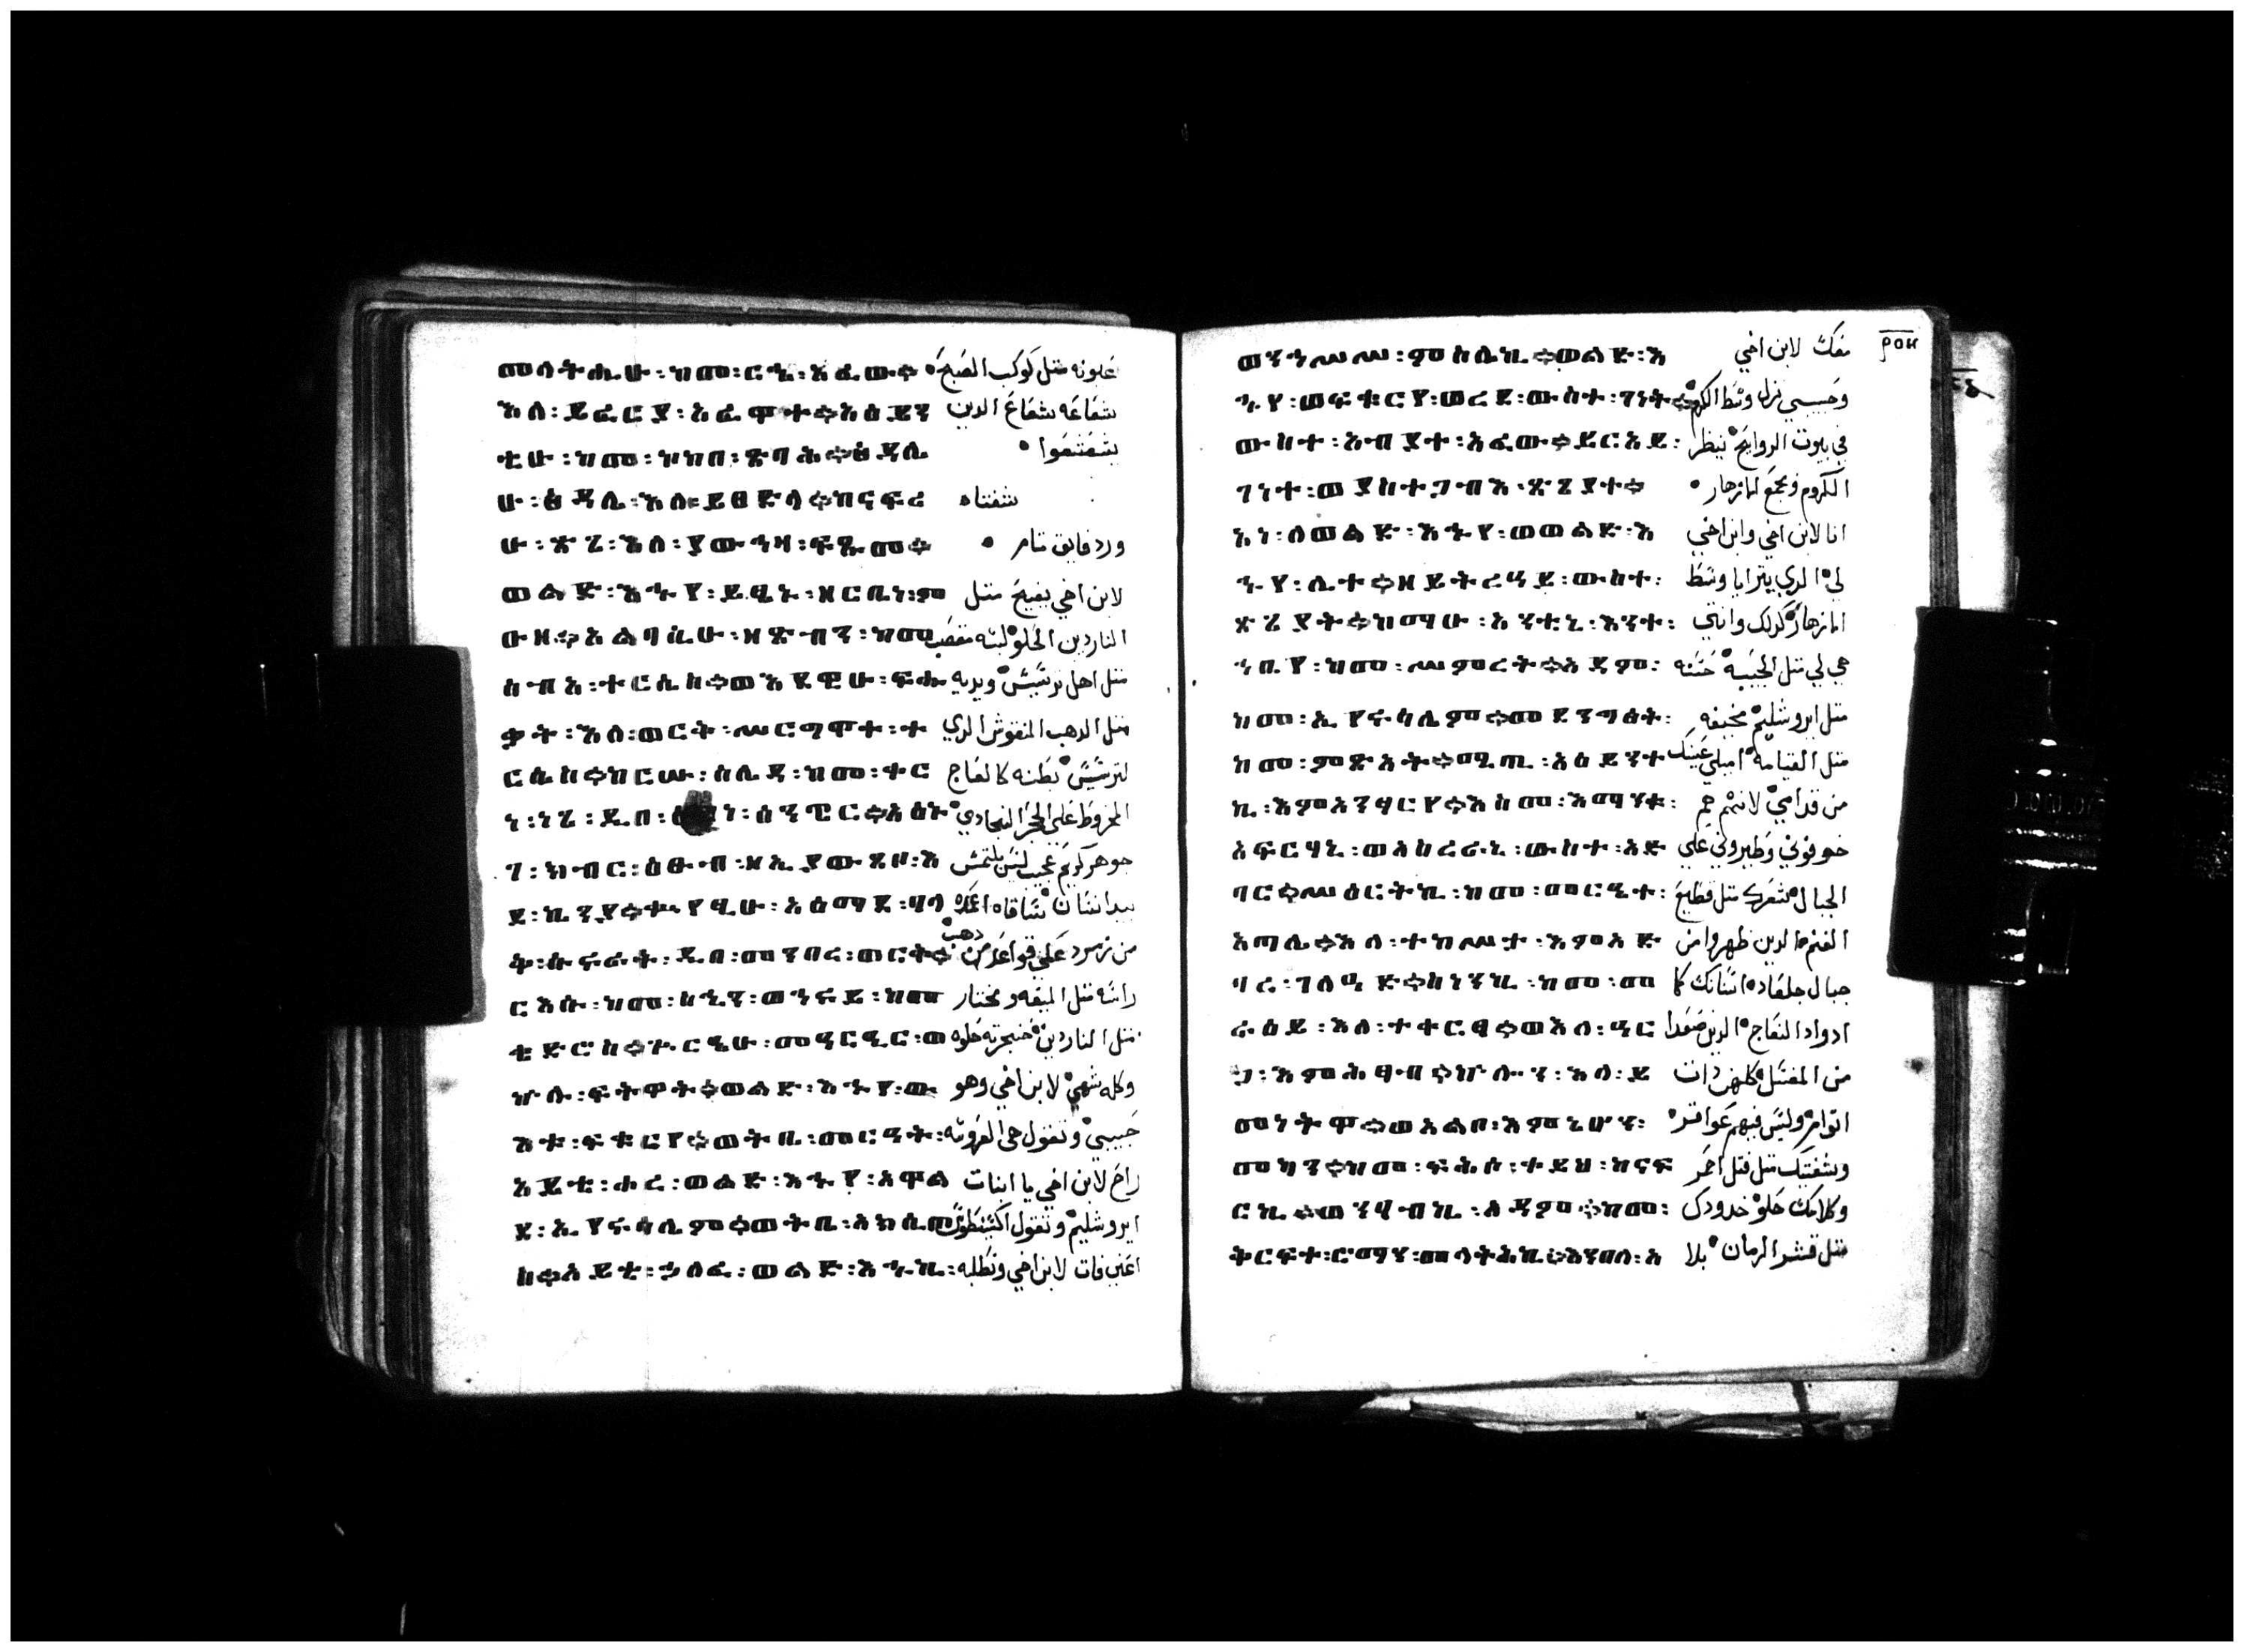 መላትሒሁ፡ከመ፡ርሔ፡አፈው። عيونه متل كوكب الصبح
እለ፡ይፈርያ፡አፈዋተ።አዕይን شفاعه شفاع الدين
ቲሁ፡ከመ፡ኮከበ፡ጽባሕ።ፅዳሌ يشفتفعوا
ሁ፡ፅዳሌ፡እለ፡ይፀድላ።ከናፍረ شفتاه
ሁ፡ጽጌ፡እለ፡ያውኅዛ፡ፍጹመ። ورد فايق تامر
ወልድ፡እኅየ፡ይፄኑ፡ዘርቤነ፡ም لابن اخي يفيح متل
ዑዘ።አልባሲሁ፡ዘጽብን፡ከመ الناردين الحلو لبسه
ሰብአ፡ተርሴስ።ወእደዊሁ፡ፍሑ متل اهل ترشيش ويديه
ቃት፡እለ፡ወርት፡ሠርግዋተ፡ተ متل الدهب المنقوش الدي
ርሴስ።ከርሡ፡ሰሌዳ፡ከመ፡ቀር لترشيش بطنه كالعاج
ነ፡ነጌ፡ዲበ፡ ሰንፔር።አዕኑ المخروط علي الحجر
ግ፡ክብር፡ዕፁብ፡ዘኢያውጼዞ፡እ جوهر كريم عجيب ليس يلتمس
ደ፡ኪንያ።ቍየጺሁ፡አዕማደ፡ባላ ساقاه اعمده
ቅ፡ሱፍራት፡ዲበ፡መንበረ፡ወርቅ። من زمرد علي قواعد من دهب
ርእሱ፡ከመ፡ስኂን፡ወኅሩይ፡ከመ راسه متل الميعه ومختار
ቄድሮስ።ጕርዔሁ፡መዓርዒር፡ወ متل الناردين حنجرته حلوه
ኵሉ፡ፍትወት።ወልድ፡እኅየ፡ው وكله شهي لابن اخي وهو
እቱ፡ፍቁርየ።ወትቤ፡መርዓት፡ حبيبي وتقول هي العروسه
አይቴ፡ሖረ፡ወልድ፡እኅየ፡አዋል راح لابن اخي يا ابنات
ደ፡ኢየሩሳሌም።ወትቤ፡አክሲማ ايروشليم وتقول
ስ።አይቴ፡ኃለፈ፡ወልድ፡እኅኪ፡ فات لابن اخي ونطلبه
፶፱
ወንኅሠሦ፡ምስሌኪ።ወልድ፡እ معك لابن اخي
ኅየ፡ወፍቁርየ፡ወረደ፡ውስተ፡ገነት። وحبيبي نزل وسط الكرم
ውስተ፡አብያተ፡አፈው።ይርአይ፡ في بيوت الروايح ينظر
ገነተ፡ወያስተጋብእ፡ጽጌያተ። الكروم ويجمع الازهار
አነ፡ለወልድ፡እኅየ፡ወወልድ፡እ انا لابن اخي وابن اخي
ኅየ፡ሊተ።ዘይትረዓይ፡ውስተ፡ لي الدي يترايا وسط
ጽጌያት።ከማሁ፡አንቲኒ፡እንተ፡ الازهار كدلك وانتي
ኀቤየ፡ከመ፡ሠምረት።አዳም፡ هي لي متل الحبيبه حسنه
ከመ፡ኢየሩሳሌም።መደንግፅት፡ متل ايروشليم مخيفه
ከመ፡ምጽአት።ሚጢ፡አዕይንተ متل القيامه اميلي عينك
ኪ፡እምአንጻርየ።እስመ፡እማንቱ፡ من قدامي لانهم هم
አፍርሃኒ፡ወአስረራኒ፡ውስተ፡አድ خوفوني وطيروني علي
ባር።ሠዕርትኪ፡ከመ፡መርዔተ፡ الجبال شعرك متل قطايع
አጣሊ።እለ፡ተከሥታ፡እምአድ الغنم الدين ظهروا من
ባረ፡ገለዓድ።ስነንኪ፡ከመ፡መ جبال جلعاد اسنانك كا
ራዕይ፡እለ፡ተቀርፃ።ወእለ፡ዓር ادواد النعاج الدين صعدا
ጋ፡እምሕፃብ።ኵሎን፡እለ፡ደ من المغتسل كلهن دات
መነትዋ።ወአልቦ፡እምኔሆን፡ اتوامر وليس فيهم عواقر
መካን።ከመ፡ፍሕሶ፡ቀይሕ፡ከናፍ وشفتيك متل فتل احمر
ርኪ።ወንባብኪ፡አዳም።ከመ፡ وكلامك حلو خدودك
ቅርፍተ፡ሮማን፡መላትሕኪ።እንበለ፡አ متل قشر الرمان بلا